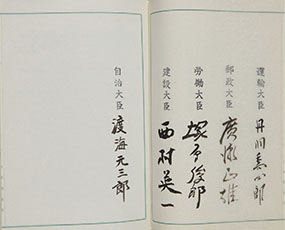 運輸大臣
丹羽喬四郎
郵政大臣
廣瀬正雄
労働大臣
塚原俊郎
建設大臣
西村英一
自治大臣
渡海元三郎